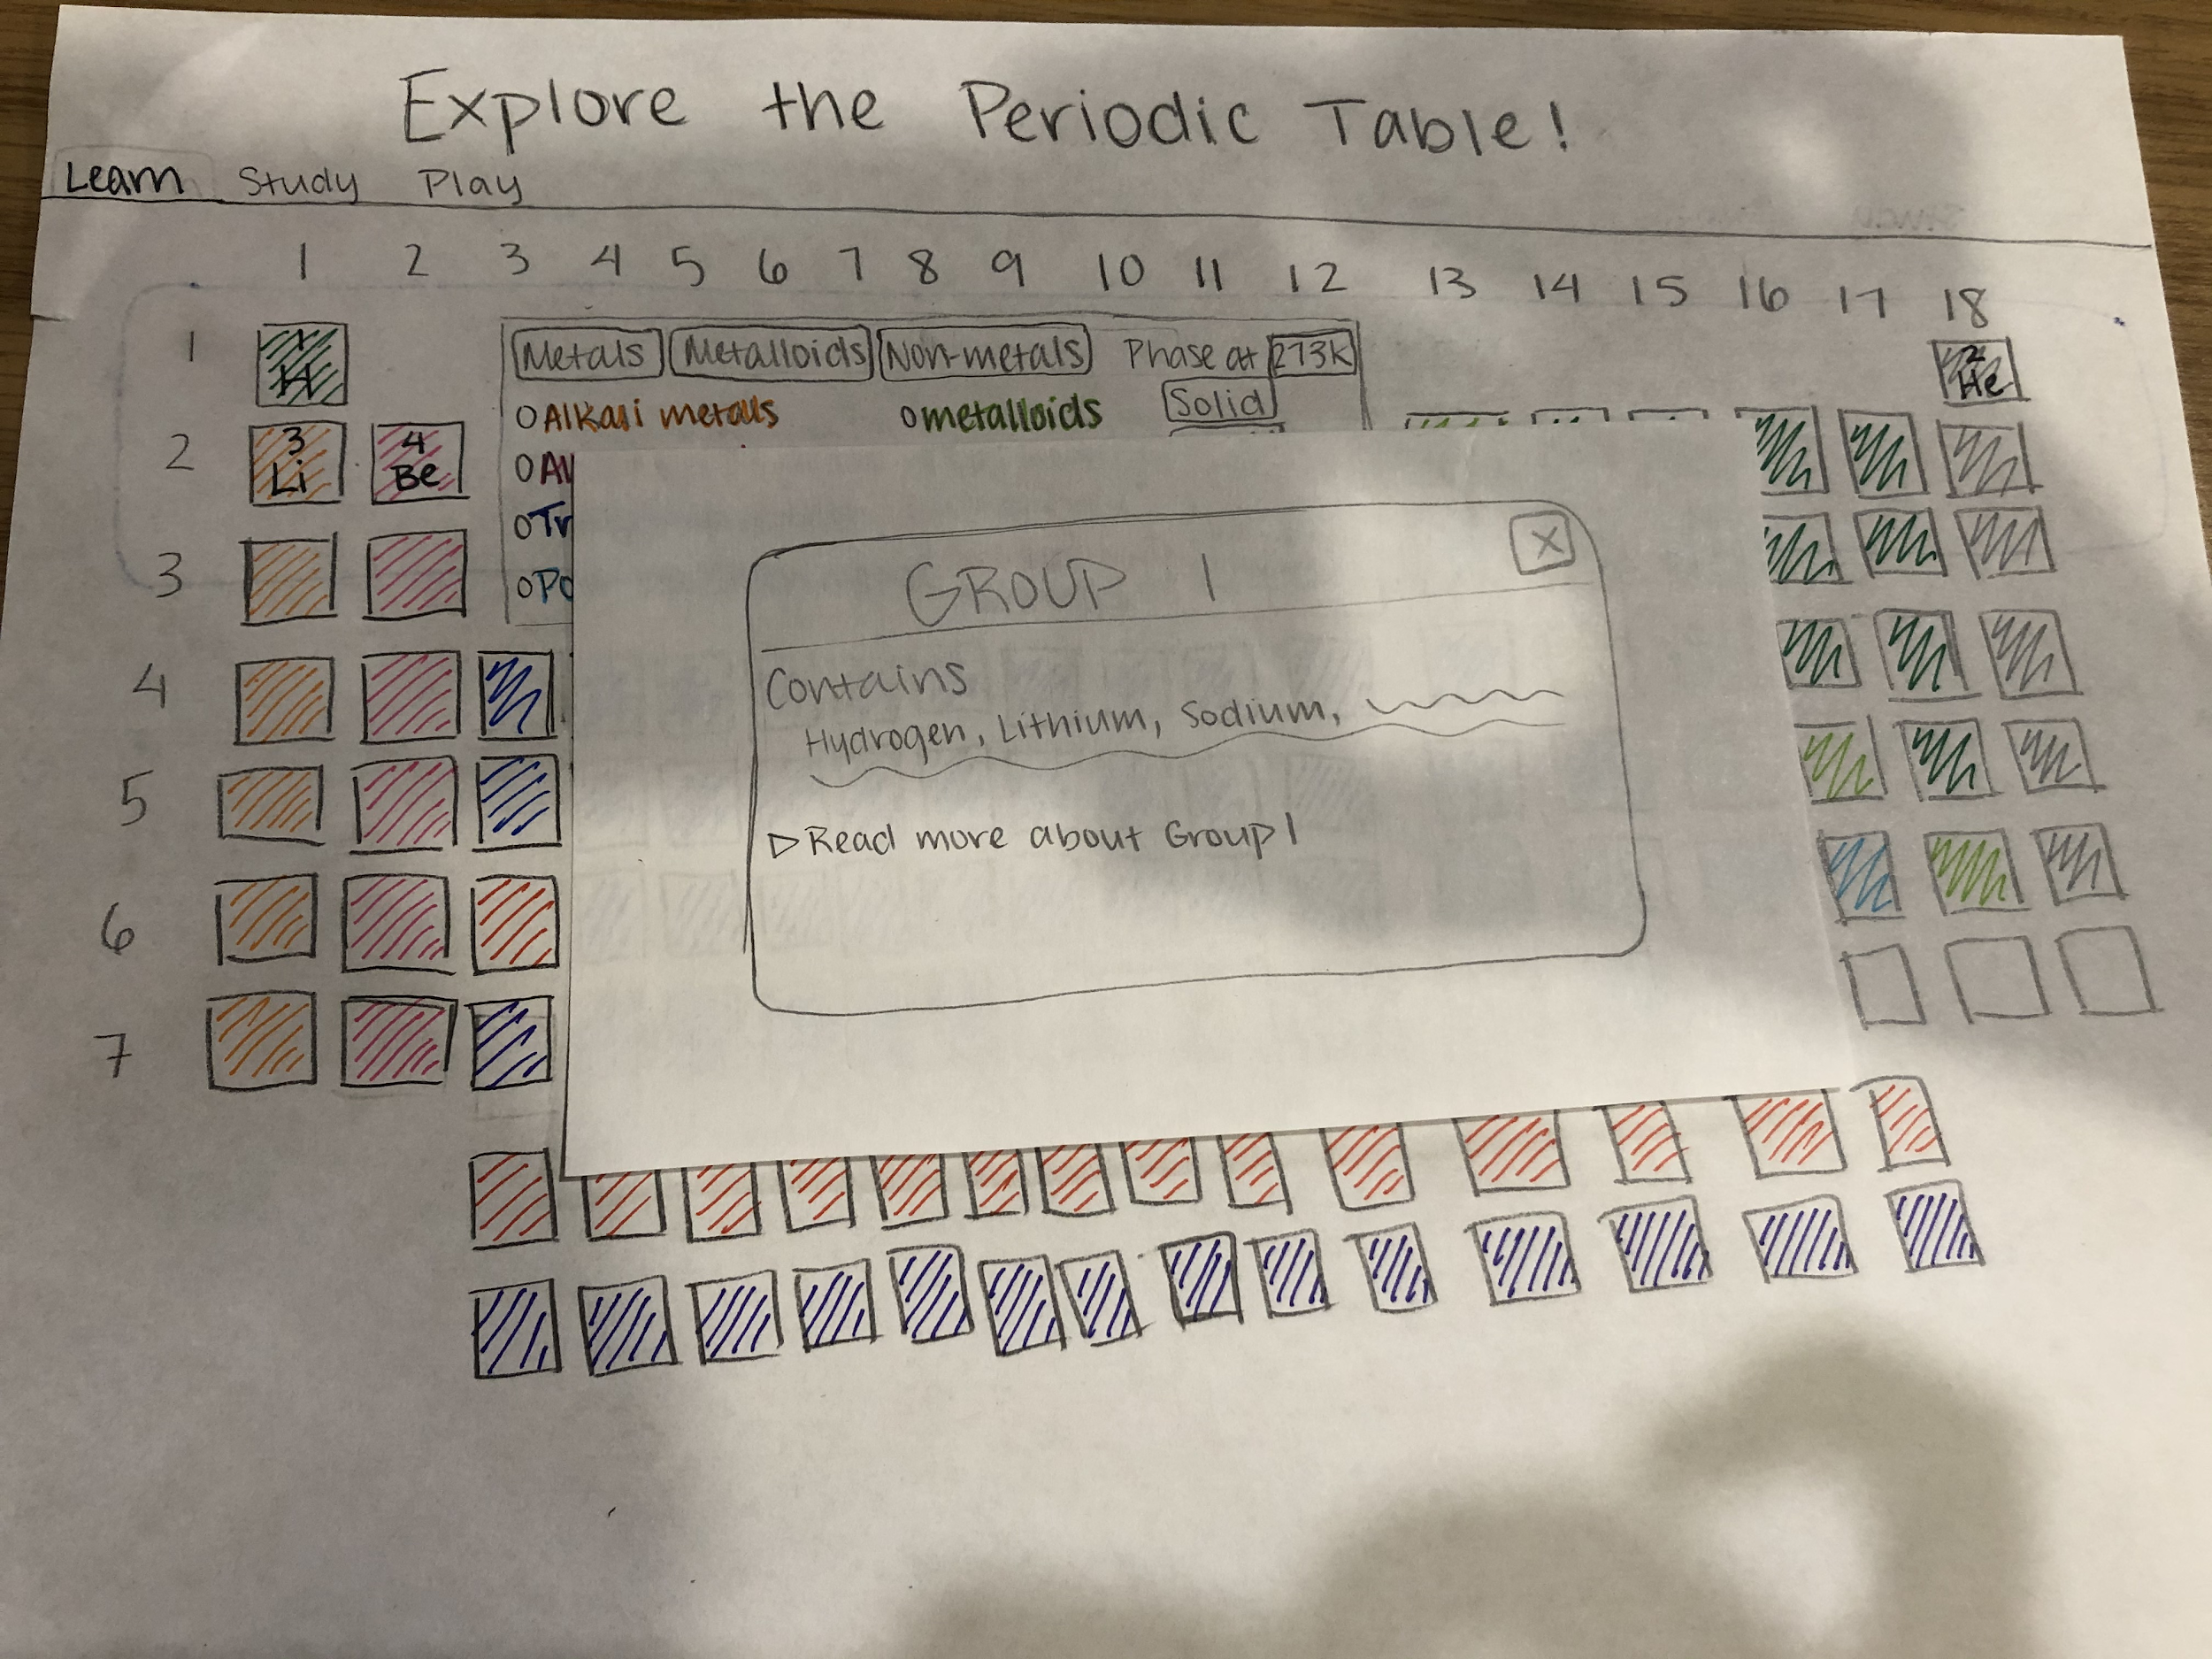 Explore the Periodic Table!
Learn Study Play
1 2 3 4 5 6 7 8 9 10 11 12 13 14 15 16 17 18
1
1
H
Metals Metalloids Non-metals Phase at 273K
2
He
O Alkali metals O metalloids Solid
2
3
Li
4
Be
O Al
O Tr
3
O Po
4
5
6
7
GROUP 1 X
Contains
Hydrogen, Lithium, Sodium,
▷ Read more about Group 1